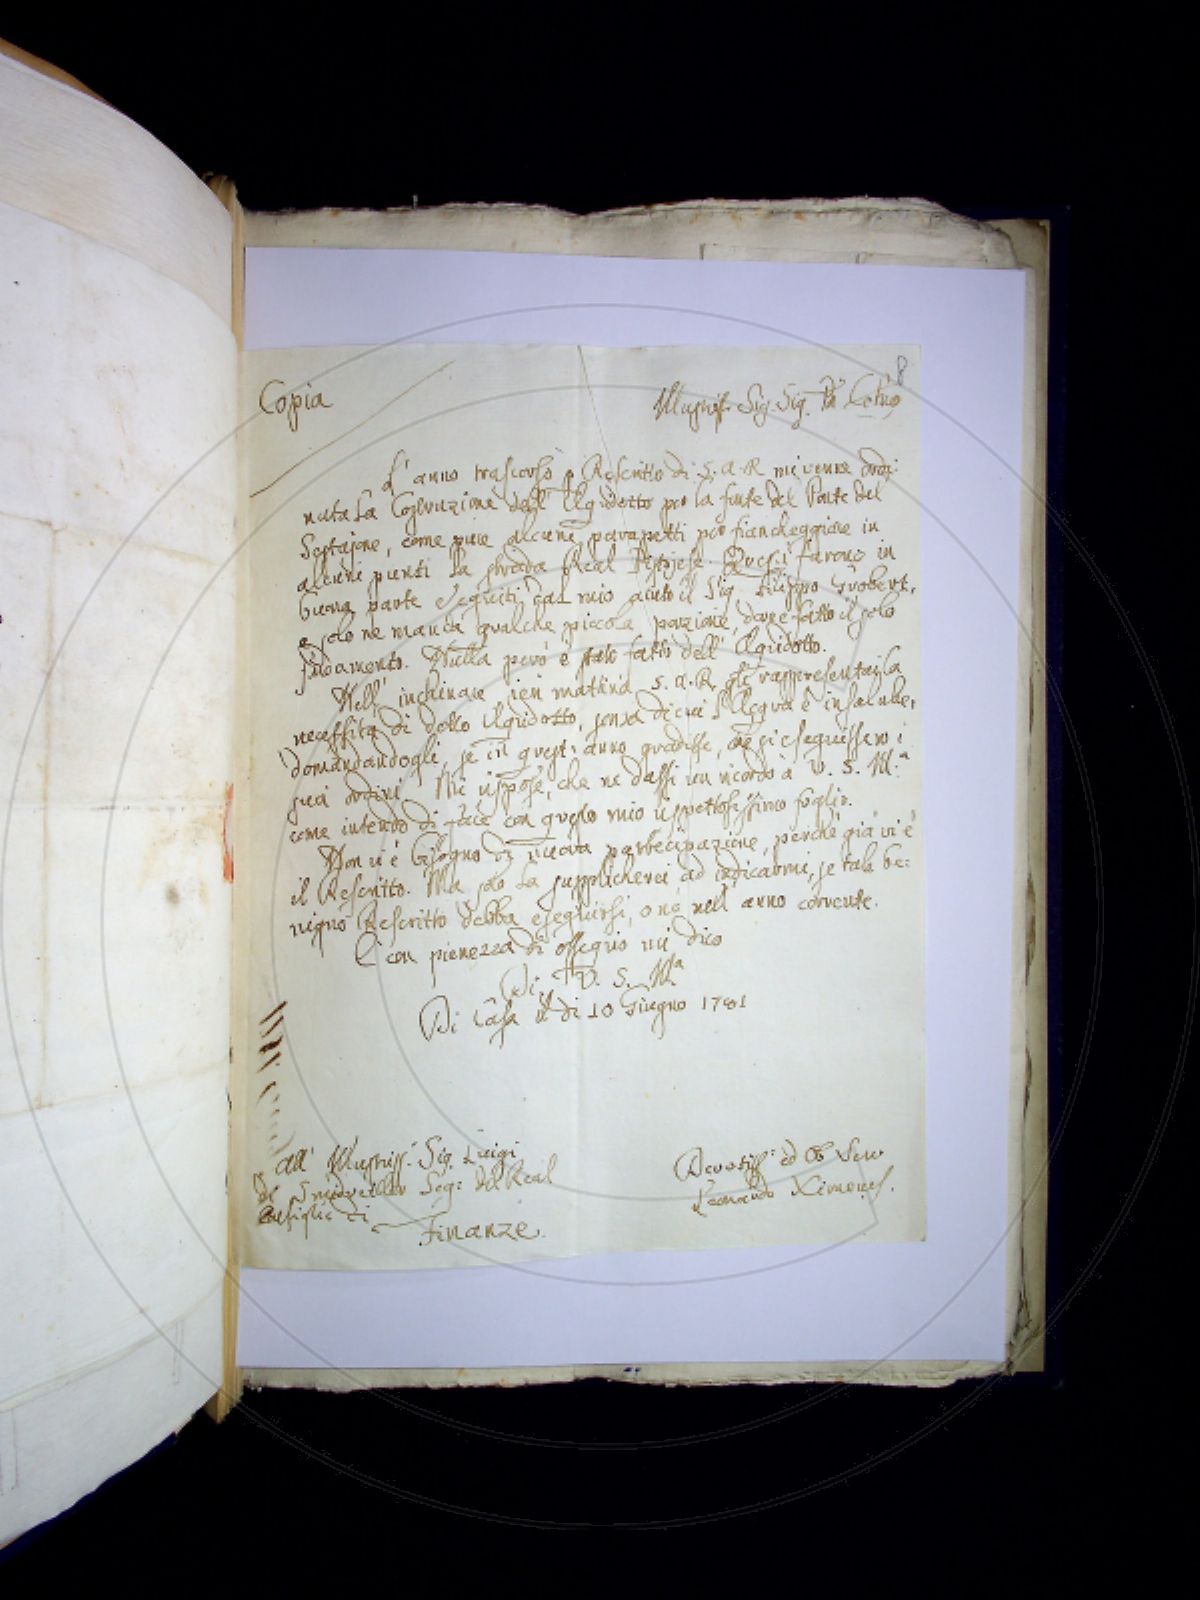 8
Copia
Illustriss. Sig. Sig. Pñe Colmo
L' anno trascorso p Rescritto di S. A. R mi venne ordi-
nata la Costruzione dell' Aquidotto per la fonte del Ponte del
Sestajone, come pure alcuni parapetti per fiancheggiare in
alcuni punti la strada Real Pistojese. Questi furono in
buona parte eseguiti dal mio aiuto il Sig. Giuseppe Grobert,
e solo ne manca qualche piccola porzione, dove è fatto il solo
fondamento. Nulla però è stato fatto dell' Aquidotto.
Nell' inchinare jeri mattina S. A. R. gli rappresentai la
necessità di detto Aquidotto, senza di cui l'Acqua è insalubre,
domandandogli, se in quest' anno gradisse, che si eseguissero i
suoi ordini. Mi rispose, che ne dassi un ricordo a V. S. Ill.ª
come intendo di fare con questo mio rispettosissimo foglio.
Non vi è bisogno di nuova partecipazione, perchè già vi è
il Rescritto. Ma solo la supplicherei ad indicarmi, se tale be-
nigno Rescritto debba eseguirsi, o nò nell' anno corrente.
E con pienezza di ossequio mi dico
Di V. S. Ill.ª
Di Casa il di 10 Giugno 1781
All' Illustriss. Sig. Luigi
Seg: del Real
Consiglio di
Finanze.
Devotiss: ed Ob Serv
Leonardo Ximenes.